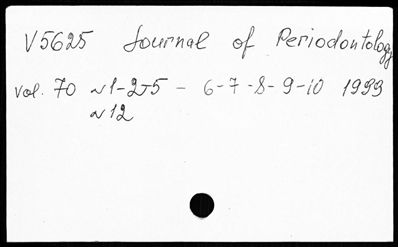 V5625 Journal of Periodontology
vol. 70 N1-2-5 - 6-7-8-9-10 1999
N12